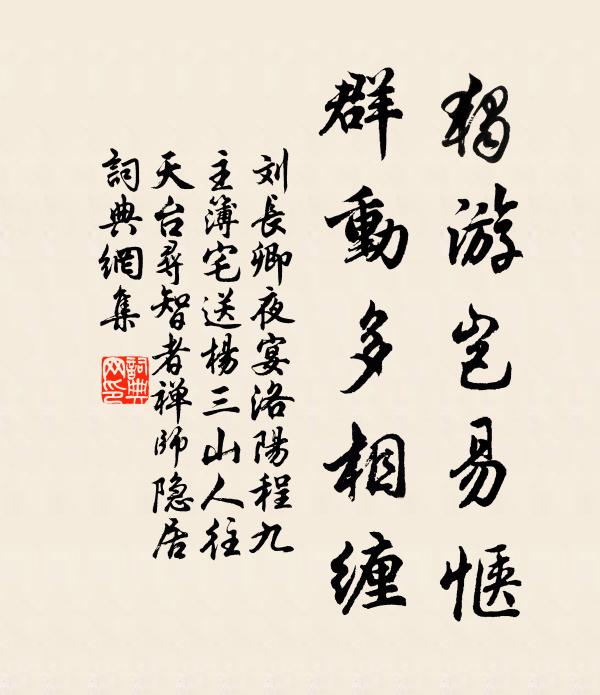 獨游岂易惬
群動多相缠
刘長卿夜宴洛陽程九
主簿宅送楊三山人往
天台尋智者禅師隐居
詞典網集
詞典网印